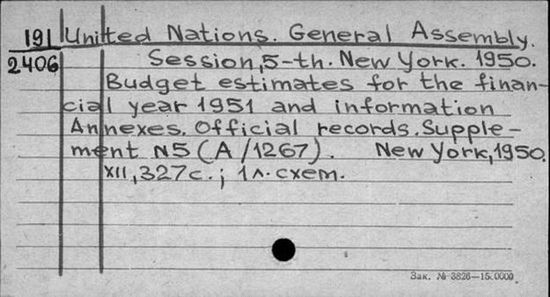 191 United Nations. General Assembly.
2406 Session, 5-th. New York. 1950.
Budget estimates for the finan-
cial year 1951 and information
Annexes. Official records. Supple-
ment N5 (A/1267). New York, 1950.
XII, 327с.; 1л. схем.
Зак. № 3826—15.0000